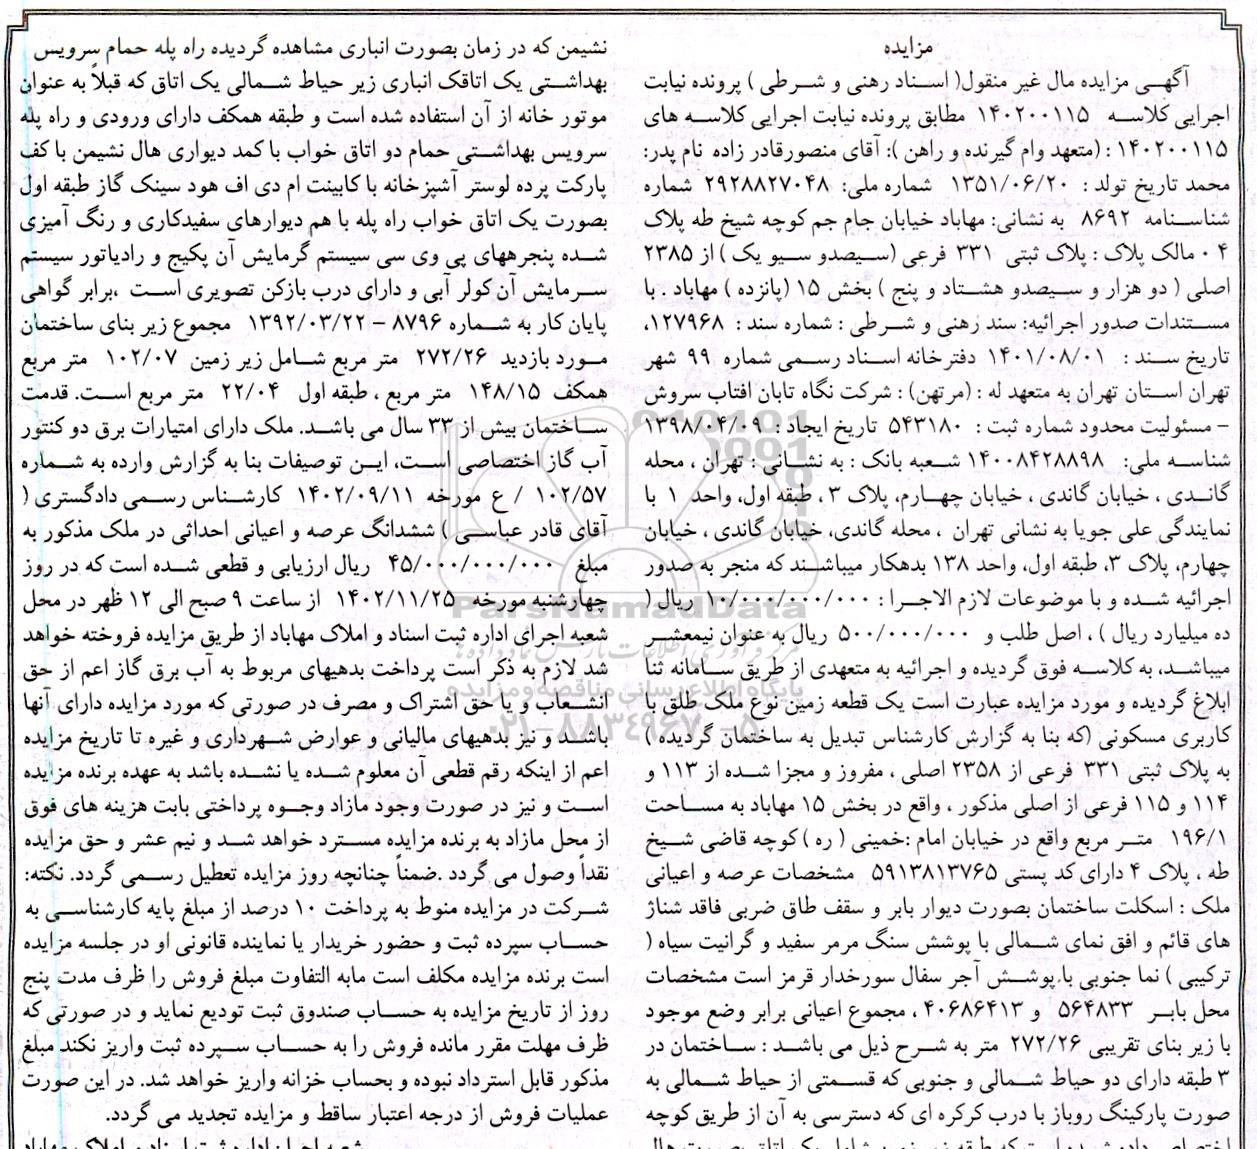 مزایده
آگهی مزایده مال غیر منقول( اسناد رهنی و شرطی ) پرونده نیابت
اجرایی کلاسه ۱۴۰۲۰۰۱۱۵ مطابق پرونده نیابت اجرایی کلاسه های
۱۴۰۲۰۰۱۱۵ : (متعهد وام گیرنده و راهن ): آقای منصورقادر زاده نام پدر:
محمد تاریخ تولد : ۱۳۵۱/۰۶/۲۰ شماره ملی: ۲۹۲۸۸۲۷۰۴۸ شماره
شناسنامه ۸۶۹۲ به نشانی: مهاباد خیابان جام جم کوچه شیخ طه پلاک
۴ ۰ مالک پلاک : پلاک ثبتی ۳۳۱ فرعی (سیصدو سیو یک ) از ۲۳۸۵
اصلی ( دو هزار و سیصدو هشتاد و پنج ) بخش ۱۵ (پانزده ) مهاباد . با
مستندات صدور اجرائیه: سند رهنی و شرطی : شماره سند : ۱۲۷۹۶۸،
تاریخ سند : ۱۴۰۱/۰۸/۰۱ دفترخانه اسناد رسمی شماره ۹۹ شهر
تهران استان تهران به متعهد له : (مرتهن) : شرکت نگاه تابان افتاب سروش
– مسئولیت محدود شماره ثبت : ۵۴۳۱۸۰ تاریخ ایجاد : ۱۳۹۸/۰۴/۰۹
شناسه ملی: ۱۴۰۰۸۴۲۸۸۹۸ شعبه بانک : به نشانی : تهران ، محله
گاندی ، خیابان گاندی ، خیابان چهارم، پلاک ۳ ، طبقه اول، واحد ۱ با
نمایندگی علی جویا به نشانی تهران ، محله گاندی، خیابان گاندی ، خیابان
چهارم، پلاک ۳، طبقه اول، واحد ۱۳۸ بدهکار میباشند که منجر به صدور
اجرائیه شده و با موضوعات لازم الاجرا : ۱۰/۰۰۰/۰۰۰/۰۰۰ ریال (
ده میلیارد ریال ) ، اصل طلب و ۵۰۰/۰۰۰/۰۰۰ ریال به عنوان نیمعشر
میباشد، به کلاسه فوق گردیده و اجرائیه به متعهدی از طریق سامانه ثنا
ابلاغ گردیده و مورد مزایده عبارت است یک قطعه زمین نوع ملک طلق با
کاربری مسکونی (که بنا به گزارش کارشناس تبدیل به ساختمان گردیده )
به پلاک ثبتی ۳۳۱ فرعی از ۲۳۵۸ اصلی ، مفروز و مجزا شده از ۱۱۳ و
۱۱۴ و ۱۱۵ فرعی از اصلی مذکور ، واقع در بخش ۱۵ مهاباد به مساحت
۱۹۶/۱ متر مربع واقع در خیابان امام :خمینی ( ره ) کوچه قاضی شیخ
طه ، پلاک ۴ دارای کد پستی ۵۹۱۳۸۱۳۷۶۵ مشخصات عرصه و اعیانی
ملک : اسکلت ساختمان بصورت دیوار بابر و سقف طاق ضربی فاقد شناژ
های قائم و افق نمای شمالی با پوشش سنگ مرمر سفید و گرانیت سیاه (
ترکیبی ) نما جنوبی با پوشش آجر سفال سورخدار قرمز است مشخصات
محل بابر ۵۶۴۸۳۳ و ۴۰۶۸۶۴۱۳ ، مجموع اعیانی برابر وضع موجود
با زیر بنای تقریبی ۲۷۲/۲۶ متر به شرح ذیل می باشد : ساختمان در
۳ طبقه دارای دو حیاط شمالی و جنوبی که قسمتی از حیاط شمالی به
صورت پارکینگ روباز با درب کرکره ای که دسترسی به آن از طریق کوچه
نشیمن که در زمان بصورت انباری مشاهده گردیده راه پله حمام سرویس
بهداشتی یک اتاقک انباری زیر حیاط شمالی یک اتاق که قبلاً به عنوان
موتور خانه از آن استفاده شده است و طبقه همکف دارای ورودی و راه پله
سرویس بهداشتی حمام دو اتاق خواب با کمد دیواری هال نشیمن با کف
پارکت پرده لوستر آشپزخانه با کابینت ام دی اف هود سینک گاز طبقه اول
بصورت یک اتاق خواب راه پله با هم دیوارهای سفیدکاری و رنگ آمیزی
شده پنجرههای پی وی سی سیستم گرمایش آن پکیج و رادیاتور سیستم
سرمایش آن کولر آبی و دارای درب بازکن تصویری است ،برابر گواهی
پایان کار به شماره ۸۷۹۶ – ۱۳۹۲/۰۳/۲۲ مجموع زیر بنای ساختمان
مورد بازدید ۲۷۲/۲۶ متر مربع شامل زیر زمین ۱۰۲/۰۷ متر مربع
همکف ۱۴۸/۱۵ متر مربع ، طبقه اول ۲۲/۰۴ متر مربع است. قدمت
ساختمان بیش از ۳۳ سال می باشد. ملک دارای امتیازات برق دو کنتور
آب گاز اختصاصی است، این توصیفات بنا به گزارش وارده به شماره
۱۰۲/۵۷ / ع مورخه ۱۴۰۲/۰۹/۱۱ کارشناس رسمی دادگستری (
آقای قادر عباسی ) ششدانگ عرصه و اعیانی احداثی در ملک مذکور به
مبلغ ۴۵/۰۰۰/۰۰۰/۰۰۰ ریال ارزیابی و قطعی شده است که در روز
چهارشنبه مورخه ۱۴۰۲/۱۱/۲۵ از ساعت ۹ صبح الی ۱۲ ظهر در محل
شعبه اجرای اداره ثبت اسناد و املاک مهاباد از طریق مزایده فروخته خواهد
شد لازم به ذکر است پرداخت بدهیهای مربوط به آب برق گاز اعم از حق
انشعاب و یا حق اشتراک و مصرف در صورتی که مورد مزایده دارای آنها
باشد و نیز بدهیهای مالیاتی و عوارض شهرداری و غیره تا تاریخ مزایده
اعم از اینکه رقم قطعی آن معلوم شده یا نشده باشد به عهده برنده مزایده
است و نیز در صورت وجود مازاد وجوه پرداختی بابت هزینه های فوق
از محل مازاد به برنده مزایده مسترد خواهد شد و نیم عشر و حق مزایده
نقداً وصول می گردد .ضمناً چنانچه روز مزایده تعطیل رسمی گردد. نکته:
شرکت در مزایده منوط به پرداخت ۱۰ درصد از مبلغ پایه کارشناسی به
حساب سپرده ثبت و حضور خریدار یا نماینده قانونی او در جلسه مزایده
است برنده مزایده مکلف است مابه التفاوت مبلغ فروش را ظرف مدت پنج
روز از تاریخ مزایده به حساب صندوق ثبت تودیع نماید و در صورتی که
ظرف مهلت مقرر مانده فروش را به حساب سپرده ثبت واریز نکند مبلغ
مذکور قابل استرداد نبوده و بحساب خزانه واریز خواهد شد. در این صورت
عملیات فروش از درجه اعتبار ساقط و مزایده تجدید می گردد.
ParsNamadData
پایگاه اطلاع رسانی مناقصه و مزایده
۰۲۱-۸۸۳۴۹۶۷۰-۵